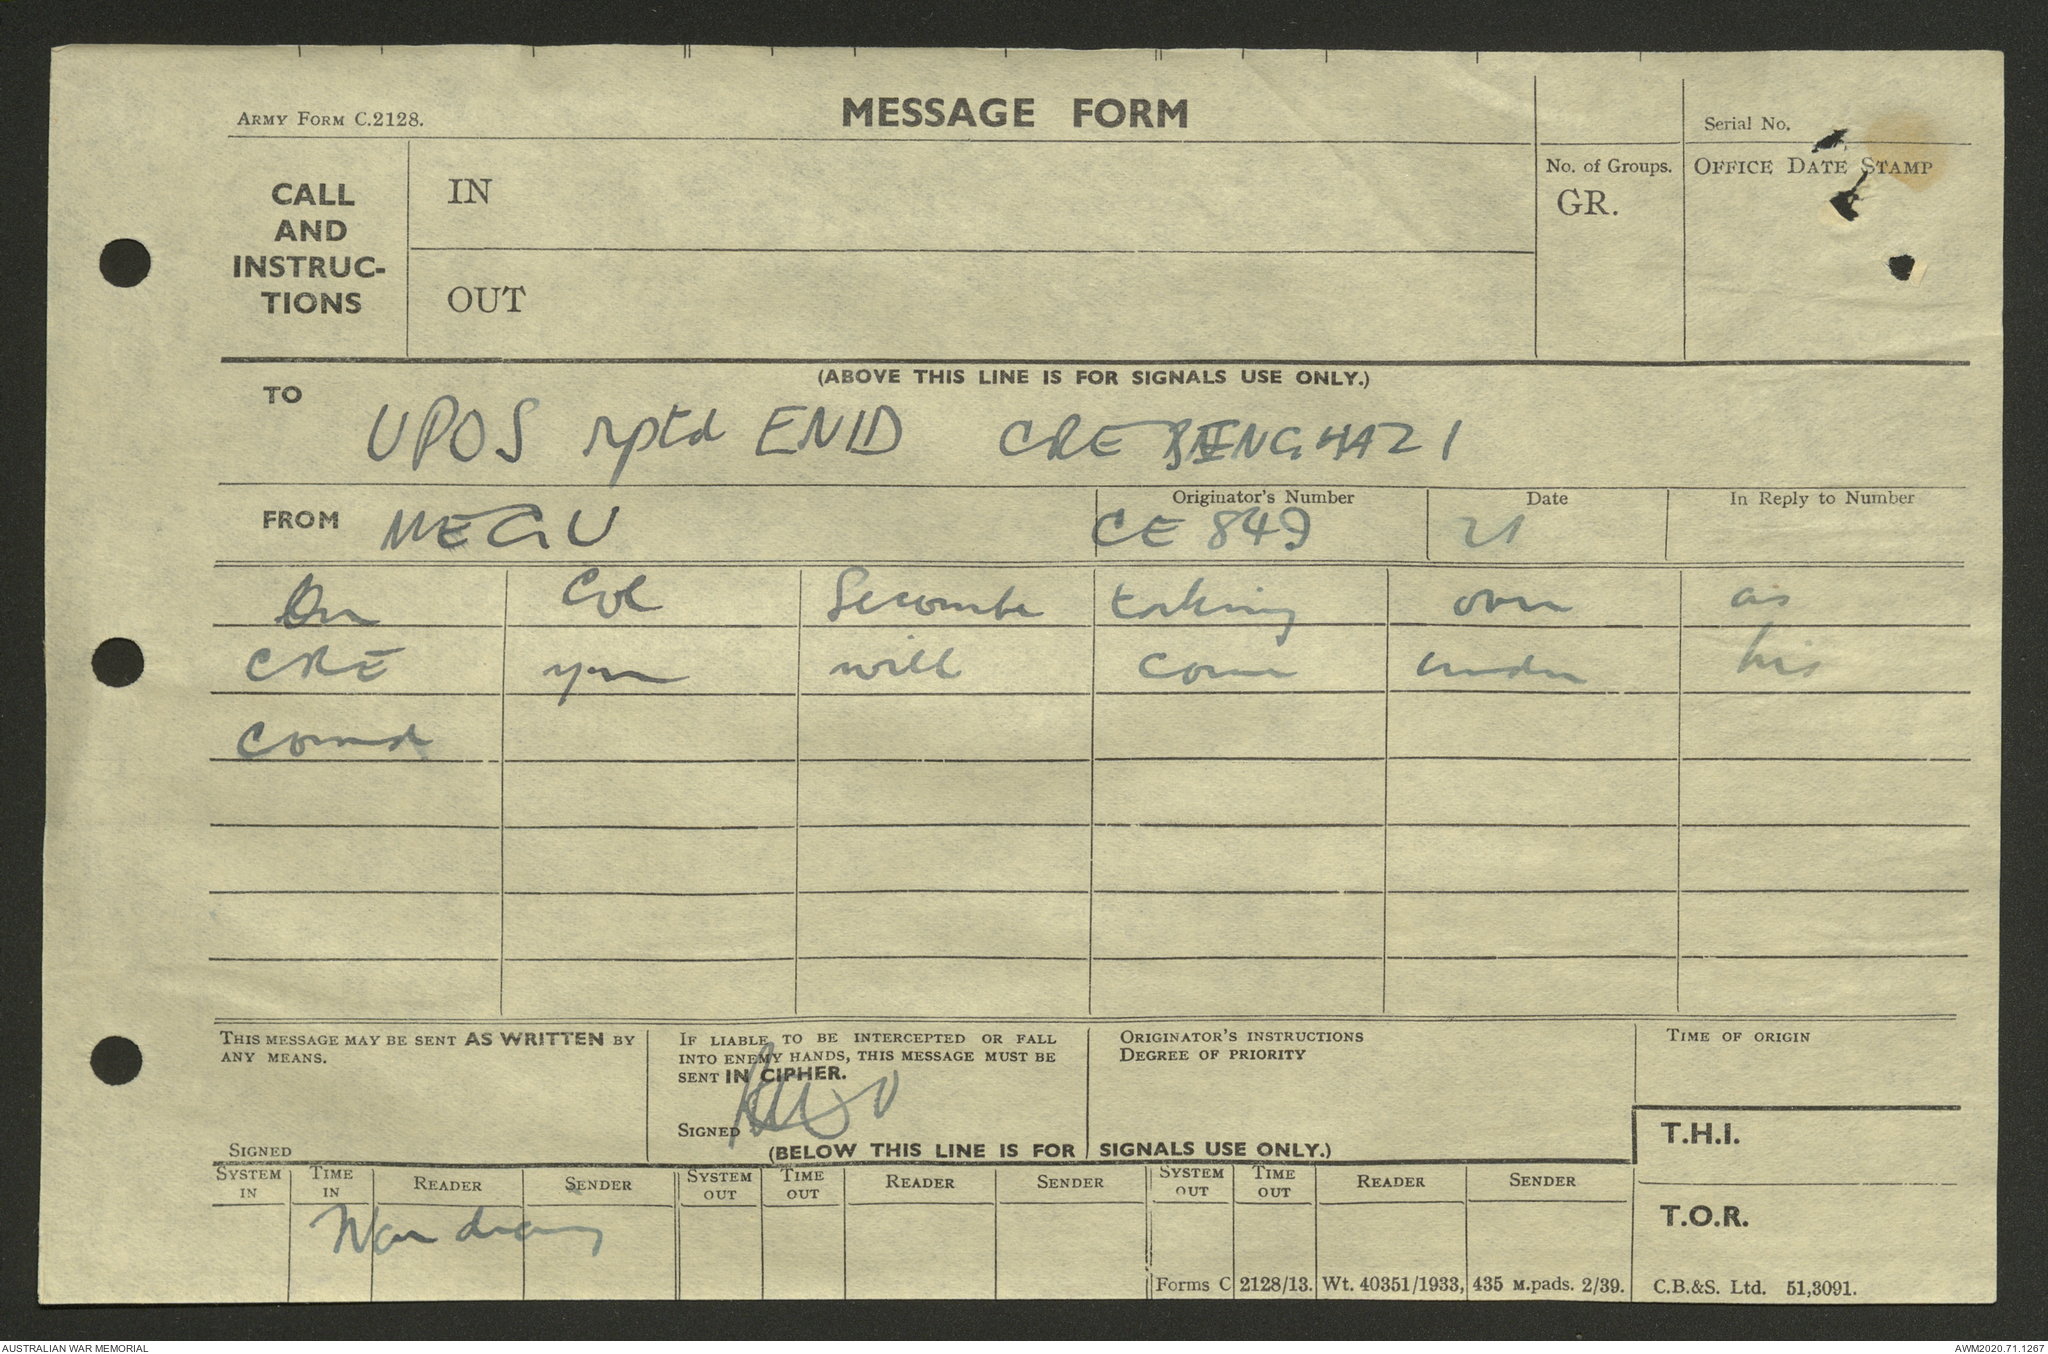 ARMY FORM C.2128.
MESSAGE FORM
Serial No.
CALL
AND
INSTRUC-
TIONS
IN
OUT
No. of Groups.
GR.
OFFICE DATE STAMP
(ABOVE THIS LINE IS FOR SIGNALS USE ONLY.)
TO
UPOS rptd ENID CRE BENGHAZI
FROM MEGU
Originator's Number
CE 849
Date
21
In Reply to Number
On Col Secombe taking over as
CRE you will come under his
comd
THIS MESSAGE MAY BE SENT AS WRITTEN BY
ANY MEANS.
SIGNED
IF LIABLE TO BE INTERCEPTED OR FALL
INTO ENEMY HANDS, THIS MESSAGE MUST BE
SENT IN CIPHER.
SIGNED
ORIGINATOR'S INSTRUCTIONS
DEGREE OF PRIORITY
TIME OF ORIGIN
(BELOW THIS LINE IS FOR SIGNALS USE ONLY.)
T.H.I.
T.O.R.
SYSTEM IN TIME IN READER SENDER SYSTEM OUT TIME OUT READER SENDER SYSTEM OUT TIME OUT READER SENDER
War diary
Forms C 2128/13. Wt. 40351/1933, 435 M.pads. 2/39. C.B.&S. Ltd. 51,3091.
AUSTRALIAN WAR MEMORIAL
AWM2020.71.1267